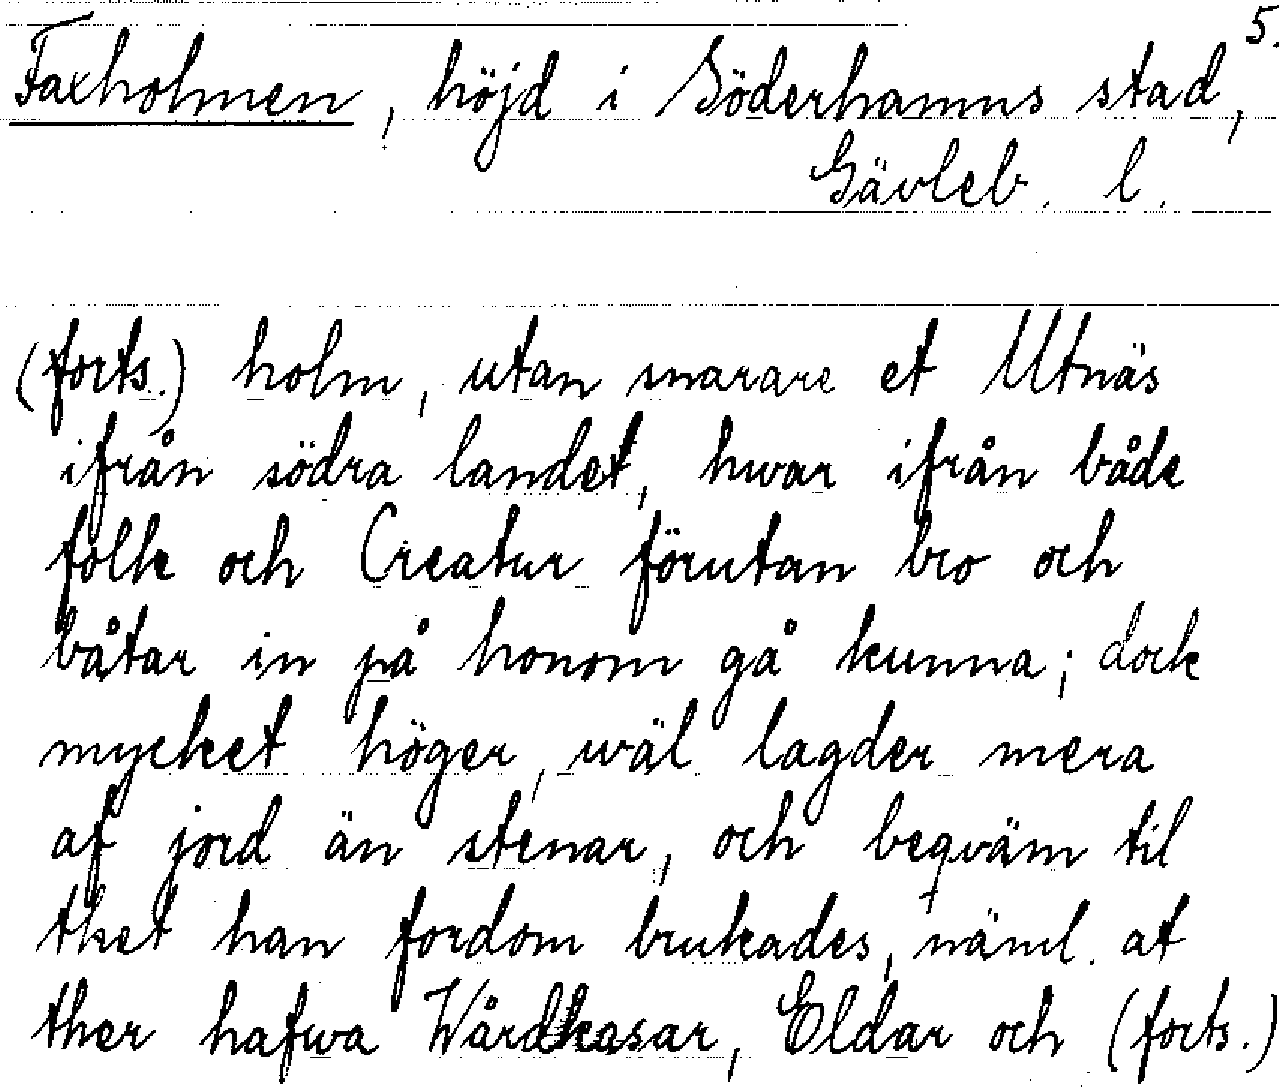 5.
Faxholmen, höjd i Söderhamns stad,
Gävleb. l.
(forts.) holm, utan snarare et Utnäs
ifrån södra landet, hwar ifrån både
folk och Creatur förutan bro och
båtar in på honom gå kunna; dock
mycket höger, wäl lagder mera
af jord än stenar, och beqväm til
thet han fordom brukades, näml. at
ther hafwa Wårdkasar, Eldar och (forts.)